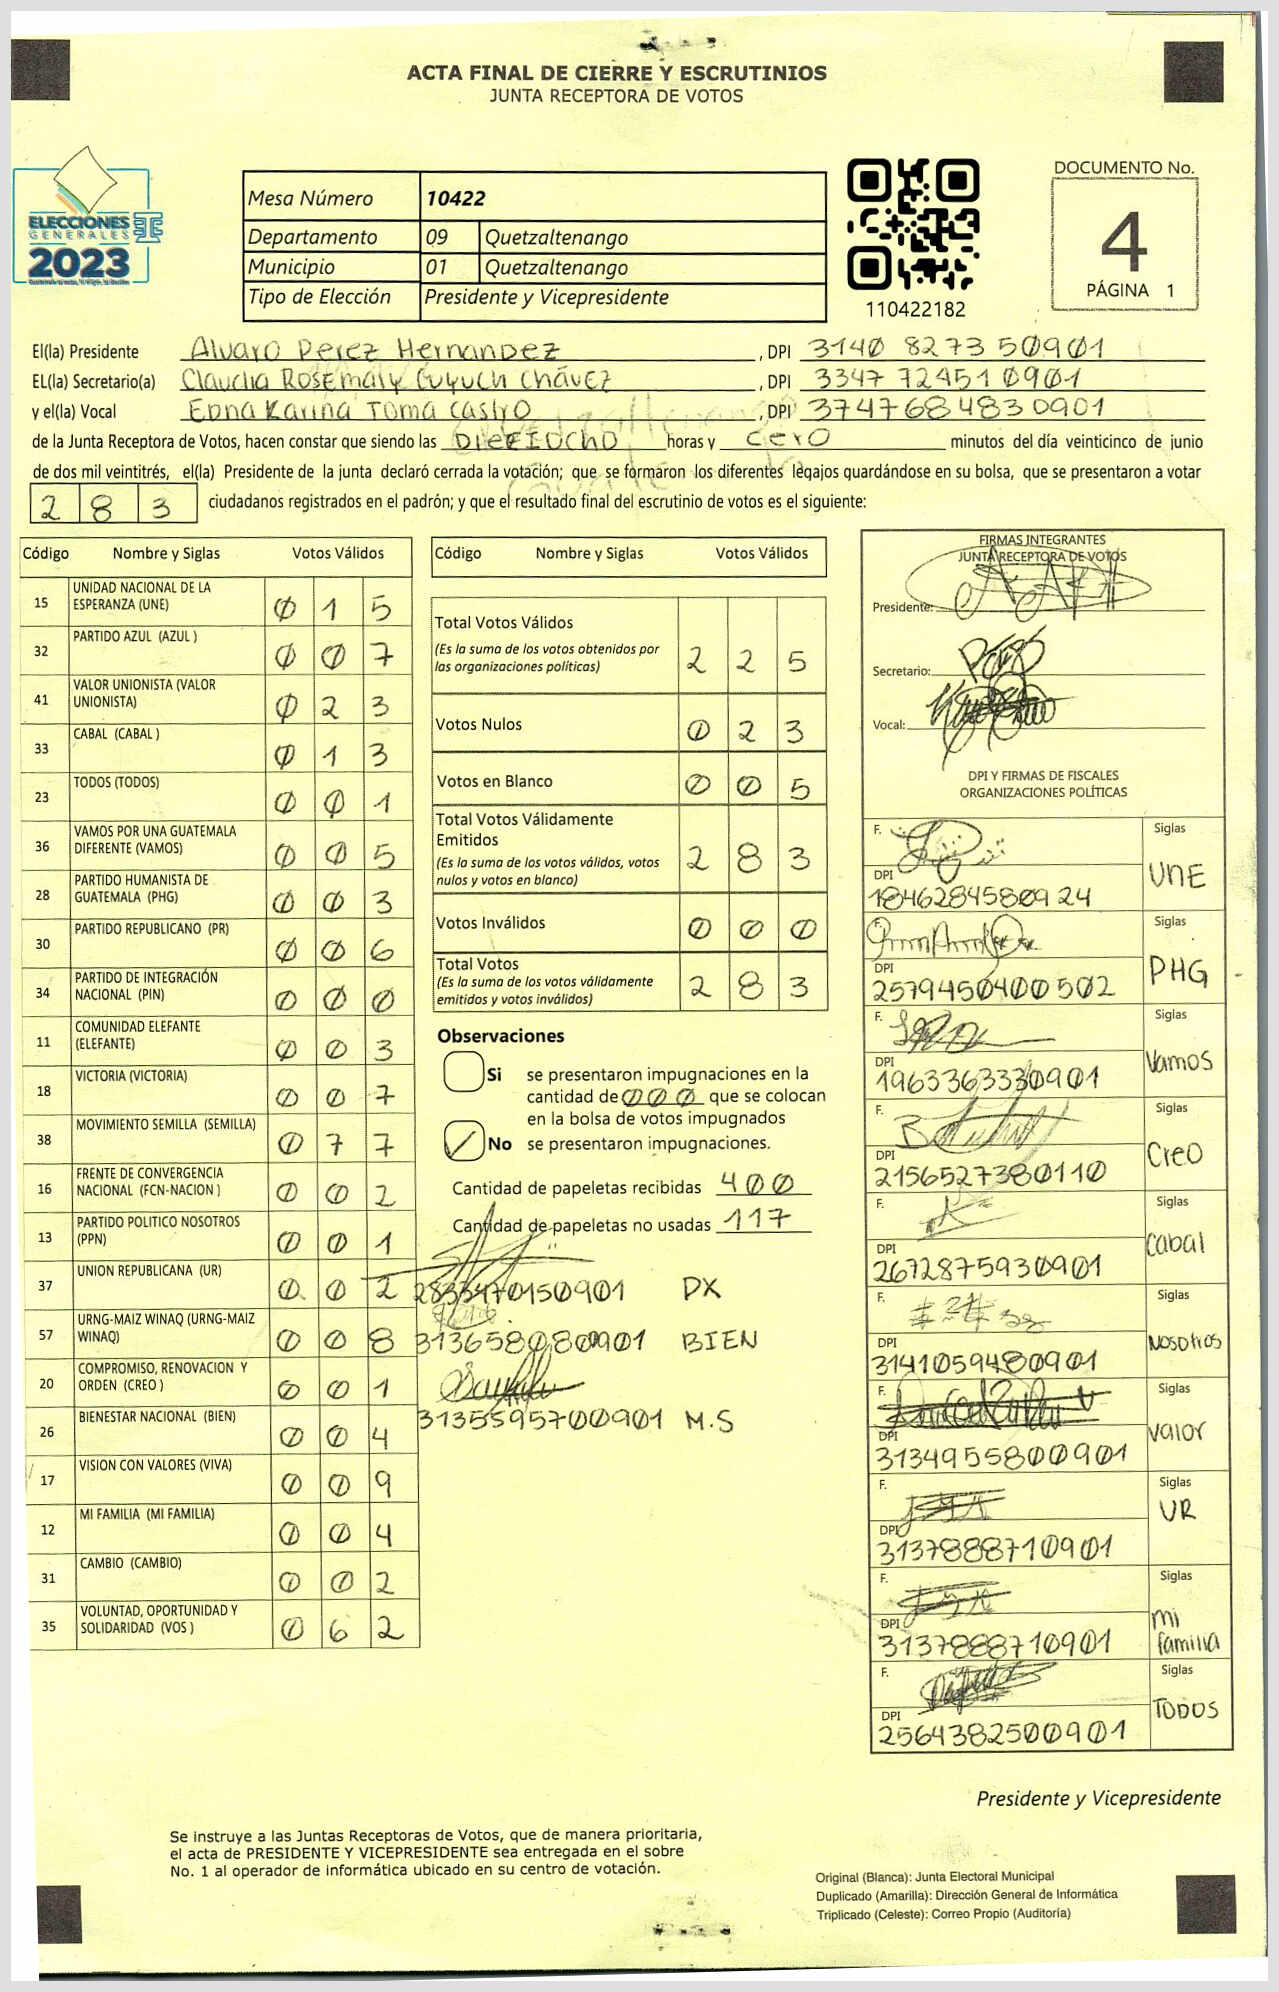 ACTA FINAL DE CIERRE Y ESCRUTINIOS
JUNTA RECEPTORA DE VOTOS
ELECCIONES
GENERALES
2023
Mesa Número 10422
Departamento 09 Quetzaltenango
Municipio 01 Quetzaltenango
Tipo de Elección Presidente y Vicepresidente
110422182
DOCUMENTO No.
4
PÁGINA 1
El(la) Presidente Alvaro Perez Hernandez, DPI 3140 8273 50901
EL(la) Secretario(a) Claudia Rosemary Cuyuch Chávez, DPI 3347 72451 0901
y el(la) Vocal Edna Karina Toma Castro, DPI 3747684830901
de la Junta Receptora de Votos, hacen constar que siendo las Dieciocho horas y cero minutos del día veinticinco de junio
de dos mil veintitrés, el(la) Presidente de la junta declaró cerrada la votación; que se formaron los diferentes legajos guardándose en su bolsa, que se presentaron a votar
2 8 3 ciudadanos registrados en el padrón; y que el resultado final del escrutinio de votos es el siguiente:
Código Nombre y Siglas Votos Válidos
15 UNIDAD NACIONAL DE LA ESPERANZA (UNE) 0 1 5
32 PARTIDO AZUL (AZUL ) 0 0 7
41 VALOR UNIONISTA (VALOR UNIONISTA) 0 2 3
33 CABAL (CABAL ) 0 1 3
23 TODOS (TODOS) 0 0 1
36 VAMOS POR UNA GUATEMALA DIFERENTE (VAMOS) 0 0 5
28 PARTIDO HUMANISTA DE GUATEMALA (PHG) 0 0 3
30 PARTIDO REPUBLICANO (PR) 0 0 6
34 PARTIDO DE INTEGRACIÓN NACIONAL (PIN) 0 0 0
11 COMUNIDAD ELEFANTE (ELEFANTE) 0 0 3
18 VICTORIA (VICTORIA) 0 0 7
38 MOVIMIENTO SEMILLA (SEMILLA) 0 7 7
16 FRENTE DE CONVERGENCIA NACIONAL (FCN-NACION ) 0 0 2
13 PARTIDO POLITICO NOSOTROS (PPN) 0 0 1
37 UNION REPUBLICANA (UR) 0 0 2
57 URNG-MAIZ WINAQ (URNG-MAIZ WINAQ) 0 0 8
20 COMPROMISO, RENOVACION Y ORDEN (CREO ) 0 0 1
26 BIENESTAR NACIONAL (BIEN) 0 0 4
17 VISION CON VALORES (VIVA) 0 0 9
12 MI FAMILIA (MI FAMILIA) 0 0 4
31 CAMBIO (CAMBIO) 0 0 2
35 VOLUNTAD, OPORTUNIDAD Y SOLIDARIDAD (VOS ) 0 6 2
Código Nombre y Siglas Votos Válidos
Total Votos Válidos
(Es la suma de los votos obtenidos por
las organizaciones políticas) 2 2 5
Votos Nulos 0 2 3
Votos en Blanco 0 0 5
Total Votos Válidamente
Emitidos
(Es la suma de los votos válidos, votos
nulos y votos en blanco) 2 8 3
Votos Inválidos 0 0 0
Total Votos
(Es la suma de los votos válidamente
emitidos y votos inválidos) 2 8 3
Observaciones
Si se presentaron impugnaciones en la
cantidad de 000 que se colocan
en la bolsa de votos impugnados
No se presentaron impugnaciones.
Cantidad de papeletas recibidas 400
Cantidad de papeletas no usadas 117
PX
BIEN
3135595700901 M.S
FIRMAS INTEGRANTES
JUNTA RECEPTORA DE VOTOS
Presidente:
Secretario:
Vocal:
DPI Y FIRMAS DE FISCALES
ORGANIZACIONES POLÍTICAS
F. Siglas
UNE
DPI
1846284580924
F. Siglas
PHG
DPI
2579450400502
F. Siglas
Vamos
DPI
1963363330901
F. Siglas
Creo
DPI
2156527380110
F. Siglas
Cabal
DPI
2672875930901
F. Siglas
Nosotros
DPI
3141059480901
F. Siglas
Valor
DPI
3134955800901
F. Siglas
UR
DPI
3137888710901
F. Siglas
mi familia
DPI
3137888710901
F. Siglas
TODOS
DPI
2564382500901
Presidente y Vicepresidente
Se instruye a las Juntas Receptoras de Votos, que de manera prioritaria,
el acta de PRESIDENTE Y VICEPRESIDENTE sea entregada en el sobre
No. 1 al operador de informática ubicado en su centro de votación.
Original (Blanca): Junta Electoral Municipal
Duplicado (Amarilla): Dirección General de Informática
Triplicado (Celeste): Correo Propio (Auditoría)